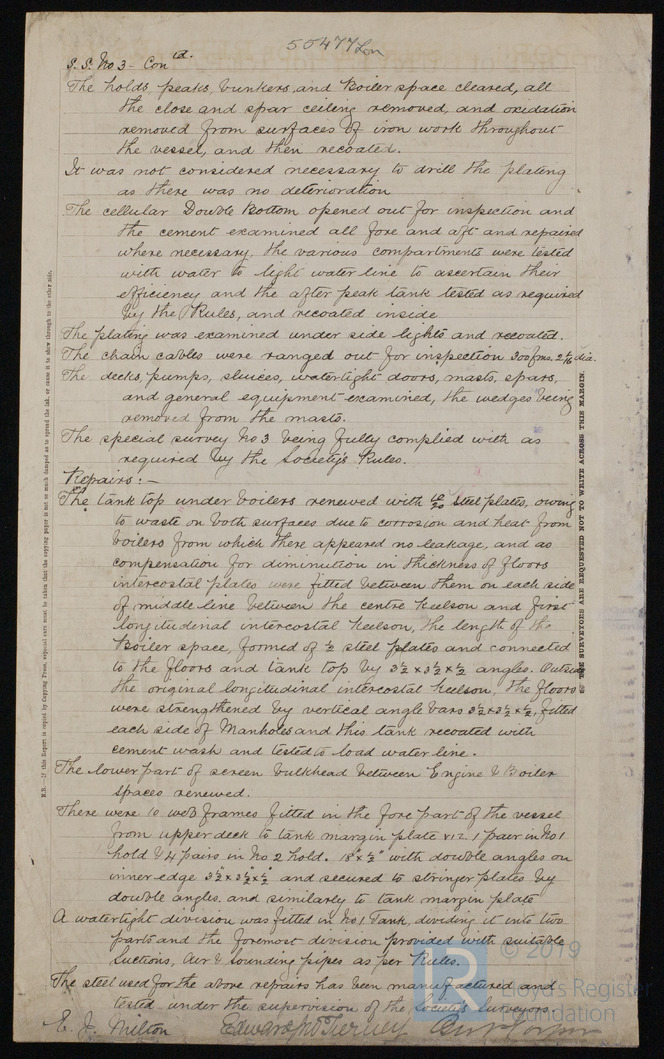 50477 Lon
S.S. No 3 - Contd.
The holds, peaks, bunkers, and Boiler space cleared, all
the close and spar ceiling removed, and oxidation
removed from surfaces of iron work throughout
the vessel, and then recoated.
It was not considered necessary to drill the plating
as there was no deterioration
The cellular Double Bottom opened out for inspection and
the cement examined all fore and aft and repaired
where necessary, the various compartments were tested
with water to light water line to ascertain their
efficiency and the after peak tank tested as required
by the Rules, and recoated inside
The plating was examined under side lights and recoated.
The chain cables were ranged out for inspection 300 fms. 2 1/16 dia.
The decks, pumps, sluices, watertight doors, masts, spars,
and general equipment examined, the wedges being
removed from the masts.
The special survey No 3 being fully complied with as
required by the Society's Rules.
Repairs:-
The tank top under boilers renewed with 10/20 steel plates, owing
to waste on both surfaces due to corrosion and heat from
boilers from which there appeared no leakage, and as
compensation for diminution in thickness of floors
intercostal plates were fitted between them on each side
of middle line between the centre keelson and first
longitudinal intercostal keelson, the length of the
Boiler space, formed of ½ steel plates and connected
to the floors and tank top by 3½ x 3½ x ½ angles. Outside
the original longitudinal intercostal keelson, the floors
were strengthened by vertical angle bars 3½ x 3½ x ½, fitted
each side of Manholes and this tank recoated with
cement wash and tested to load water line.
The lower part of screen bulkhead between Engine & Boiler
spaces renewed.
There were 10 web frames fitted in the fore part of the vessel
from upper deck to tank margin plate viz. 1 pair in No 1
hold & 4 pairs in No 2 hold. 18" x ½" with double angles on
inner edge 3½" x 3½" x ½" and secured to stringer plates by
double angles. and similarly to tank margin plate
A watertight division was fitted in No 1 Tank, dividing it into two
parts and the foremost division provided with suitable
suctions, Air & sounding pipes as per Rules.
The steel used for the above repairs has been manufactured and
tested under the supervision of the Society's Surveyors
E. J. Milton
N.B.—If this Report is copied by Copying Press, especial care must be taken that the copying paper is not so much damped as to spread the ink, or cause it to show through to the other side.
THE SURVEYORS ARE REQUESTED NOT TO WRITE ACROSS THIS MARGIN.
© 2019
Lloyd's Register
Foundation